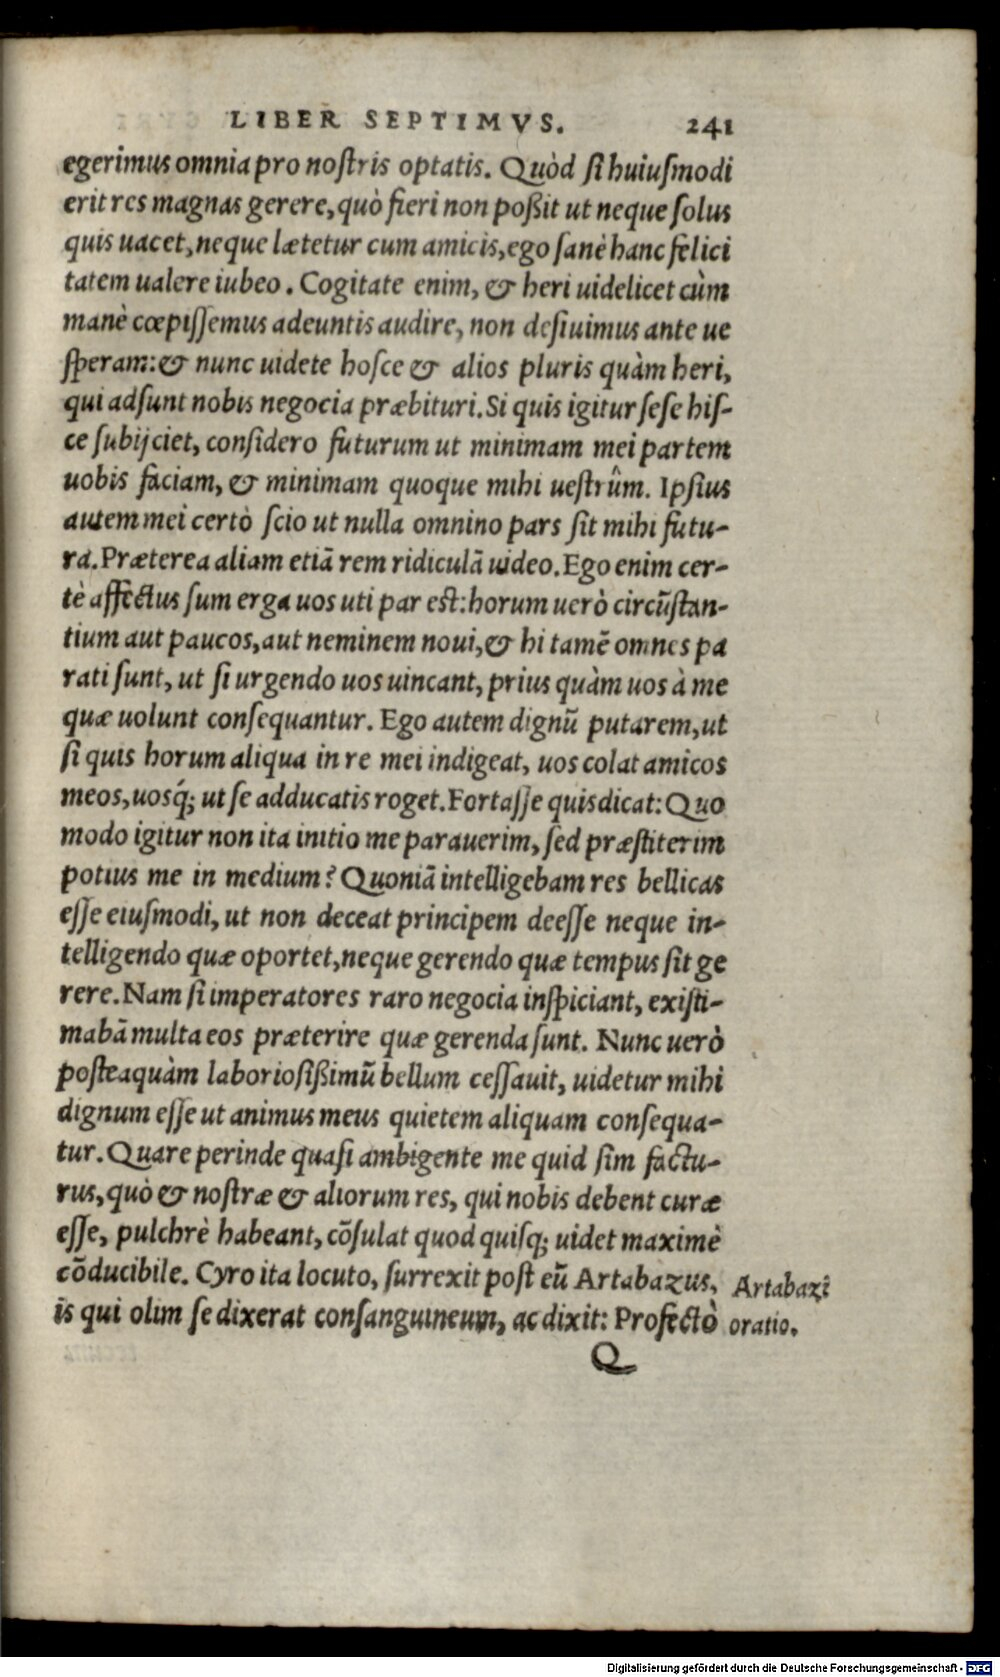 LIBER SEPTIMVS. 241
egerimus omnia pro nostris optatis. Quòd si huiusmodi
erit res magnas gerere, quò fieri non poßit ut neque solus
quis uacet, neque lætetur cum amicis, ego sanè hanc felici
tatem ualere iubeo. Cogitate enim, & heri uidelicet cùm
manè cœpissemus adeuntis audire, non desiuimus ante ue
speram: & nunc uidete hosce & alios pluris quàm heri,
qui adsunt nobis negocia præbituri. Si quis igitur sese his-
ce subijciet, considero futurum ut minimam mei partem
uobis faciam, & minimam quoque mihi uestrûm. Ipsius
autem mei certò scio ut nulla omnino pars sit mihi futu-
ra. Præterea aliam etiã rem ridiculã uideo. Ego enim cer-
tè affectus sum erga uos uti par est: horum uerò circũstan-
tium aut paucos, aut neminem noui, & hi tamẽ omnes pa
rati sunt, ut si urgendo uos uincant, prius quàm uos à me
quæ uolunt consequantur. Ego autem dignũ putarem, ut
si quis horum aliqua in re mei indigeat, uos colat amicos
meos, uosq́; ut se adducatis roget. Fortasse quis dicat: Quo
modo igitur non ita initio me parauerim, sed præstiterim
potius me in medium? Quoniã intelligebam res bellicas
esse eiusmodi, ut non deceat principem deesse neque in-
telligendo quæ oportet, neque gerendo quæ tempus sit ge
rere. Nam si imperatores raro negocia inspiciant, existi-
mabã multa eos præterire quæ gerenda sunt. Nunc uerò
posteaquàm laboriosißimũ bellum cessauit, uidetur mihi
dignum esse ut animus meus quietem aliquam consequa-
tur. Quare perinde quasi ambigente me quid sim factu-
rus, quò & nostræ & aliorum res, qui nobis debent curæ
esse, pulchrè habeant, cõsulat quod quisq; uidet maximè
cõducibile. Cyro ita locuto, surrexit post eũ Artabazus, Artabazi
is qui olim se dixerat consanguineum, ac dixit: Profectò oratio.
Q
Digitalisierung gefördert durch die Deutsche Forschungsgemeinschaft - DFG